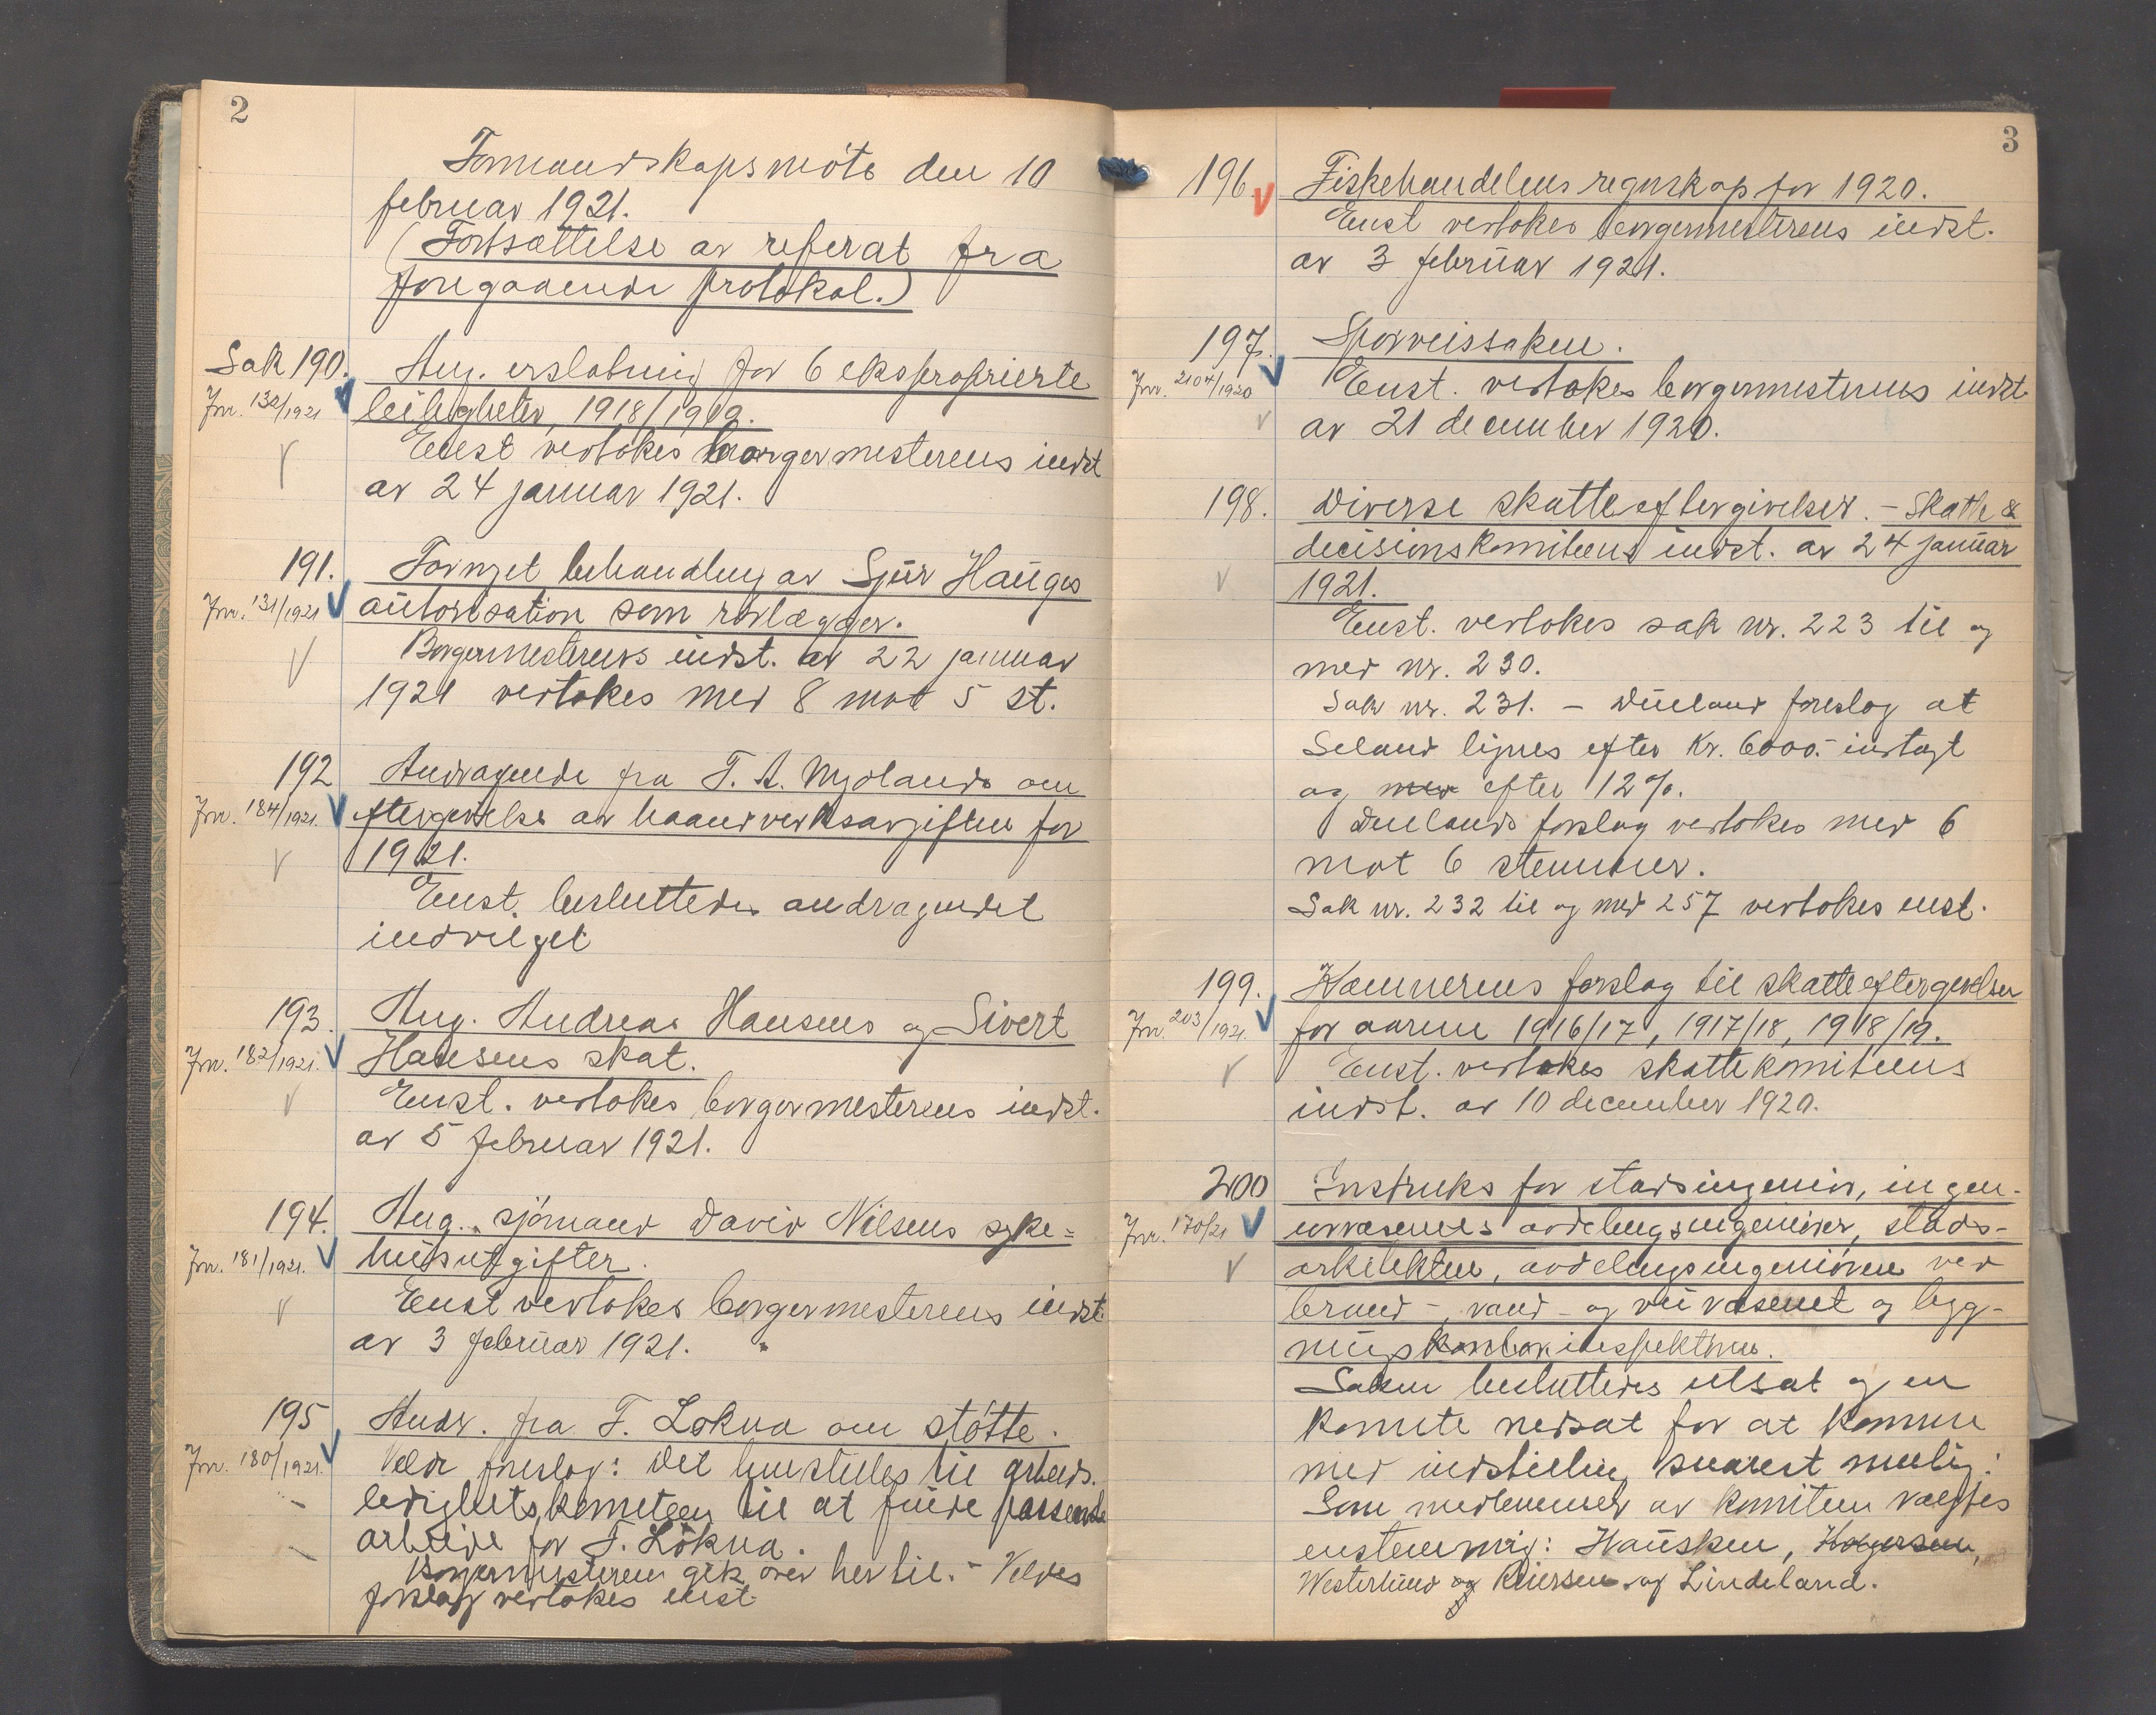 2
Formandskapsmöte den 10
februar 1921.
(Fortsættelse av referat fra
foregaaende protokol.)
Sak 190. Ang. erstatning for 6 eksproprierte
Jnr. 132/1921 leiligheter, 1918/1919.
Enst vedtokes borgermesterens indst
av 24 januar 1921.
191. Fornyet behandling av Sjur Hauges
Jnr. 131/1921 autorisation som rørlægger.
Borgermesterens indst. av 22 januar
1921 vedtokes med 8 mot 5 st.
192 Andragende fra T. A. Mjølands om
Jnr. 184/1921. eftergivelse av haandverksavgiften for
1921.
Enst. besluttedes andragendet
indvilget
193. Ang. Andreas Hansens og Sivert
Jnr. 182/1921. Hansens skat.
Enst. vedtokes borgermesterens indst.
av 5 februar 1921.
194. Ang. sjömand David Nilsens syke=
Jnr. 181/1921. husutgifter.
Enst vedtokes borgermesterens indst.
av 3 februar 1921.
195 Andr. fra F. Lökna om stötte.
Jnr. 180/1921. foreslog: Det henstilles til arbeids-
ledighetskomiteen til at finde passende
arbeide for F. Lökna.
Borgermesteren gik over hertil. -
forslag vedtokes enst.
3
196. Fiskehandelens regnskap for 1920.
Enst vedtokes borgermesterens indst.
av 3 februar 1921.
197. Sporveissaken.
Jnr. 2104/1920 Enst. vedtokes borgermesterens indst.
av 21 december 1920.
198. Diverse skatteeftergivelser. - Skatte &
decisionskomiteens indst. av 24 januar
1921.
Enst. vedtokes sak nr. 223 til og
med nr. 230.
Sak nr. 231. - Dueland foreslog at
Seland lignes efter Kr. 6000.- indtægt
og med efter 12%.
Duelands forslag vedtokes med 6
mot 6 stemmer.
Sak nr. 232 til og med 257 vedtokes enst.
199. Kæmnerens forslag til skatteeftergivelser
Jnr. 203/1921. for aarene 1916/17, 1917/18, 1918/19.
Enst. vedtokes skattekomiteens
indst. av 10 december 1920.
200 Instruks for stadsingeniör, ingen-
Jnr. 170/21 iörvæsenets avdelingsingeniörer, stads-
arkitekten, avdelingsingeniören ved
brand-, vand- og veivæsenet og byg-
ningskontorinspektören.
Saken besluttedes utsat og en
komite nedsat for at komme
med indstilling snarest mulig:
Som medlemmer av komiteen valgtes
enstemmig: Hausken, Holgersen,
Westerlund og Reiersen og Lindeland.